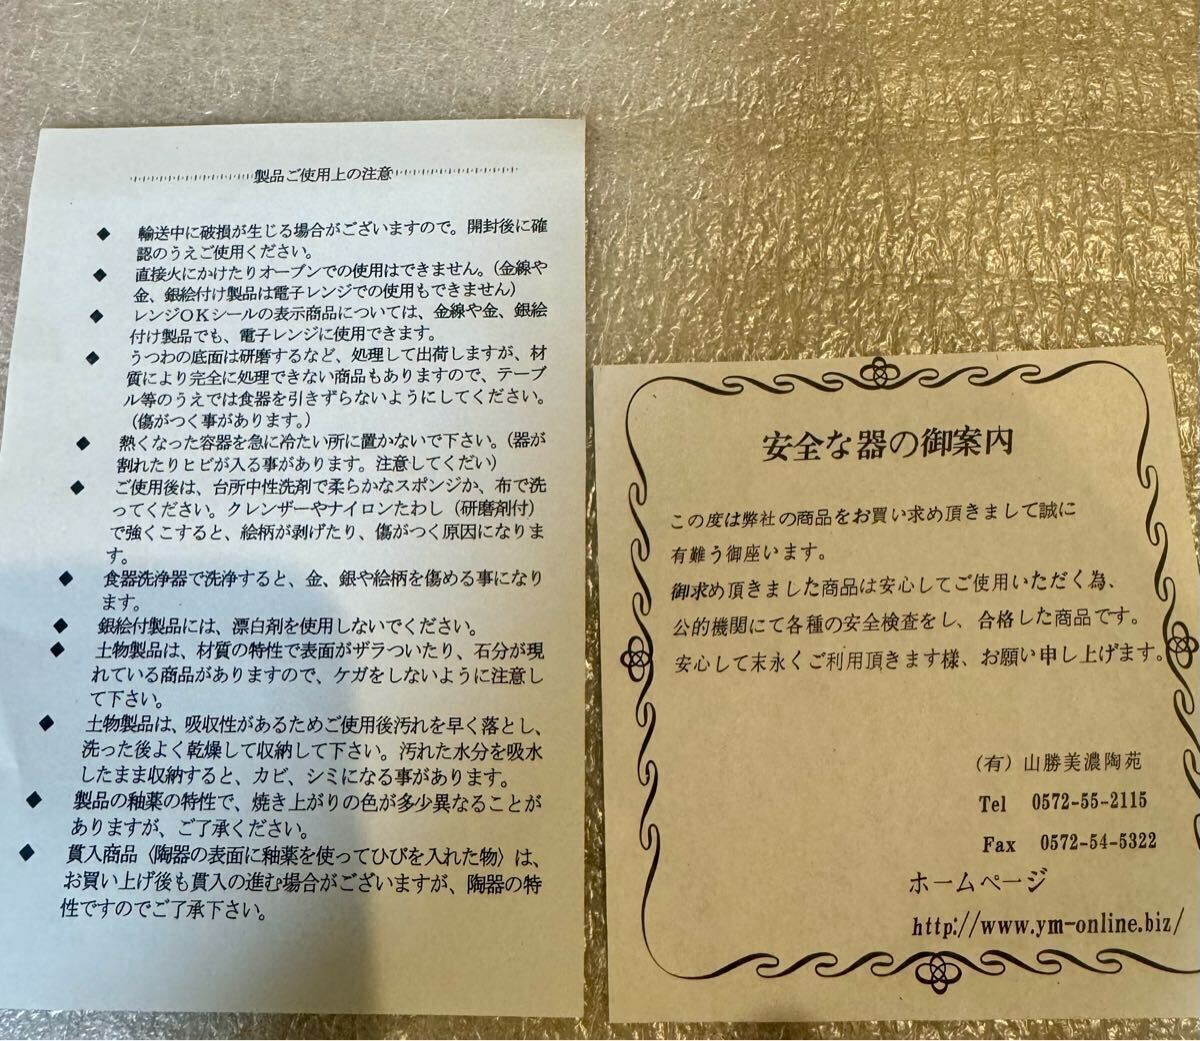 製品ご使用上の注意
◆ 輸送中に破損が生じる場合がございますので。開封後に確
認のうえご使用ください。
◆ 直接火にかけたりオーブンでの使用はできません。（金線や
金、銀絵付け製品は電子レンジでの使用もできません）
◆ レンジOKシールの表示商品については、金線や金、銀絵
付け製品でも、電子レンジに使用できます。
◆ うつわの底面は研磨するなど、処理して出荷しますが、材
質により完全に処理できない商品もありますので、テーブ
ル等のうえでは食器を引きずらないようにしてください。
（傷がつく事があります。）
◆ 熱くなった容器を急に冷たい所に置かないで下さい。（器が
割れたりヒビが入る事があります。注意してくだい）
◆ ご使用後は、台所中性洗剤で柔らかなスポンジか、布で洗
ってください。クレンザーやナイロンたわし（研磨剤付）
で強くこすると、絵柄が剥げたり、傷がつく原因になりま
す。
◆ 食器洗浄器で洗浄すると、金、銀や絵柄を傷める事になり
ます。
◆ 銀絵付製品には、漂白剤を使用しないでください。
◆ 土物製品は、材質の特性で表面がザラついたり、石分が現
れている商品がありますので、ケガをしないように注意し
て下さい。
◆ 土物製品は、吸収性があるためご使用後汚れを早く落とし、
洗った後よく乾燥して収納して下さい。汚れた水分を吸水
したまま収納すると、カビ、シミになる事があります。
◆ 製品の釉薬の特性で、焼き上がりの色が多少異なることが
ありますが、ご了承ください。
◆ 貫入商品〈陶器の表面に釉薬を使ってひびを入れた物〉は、
お買い上げ後も貫入の進む場合がございますが、陶器の特
性ですのでご了承下さい。
安全な器の御案内
この度は弊社の商品をお買い求め頂きまして誠に
有難う御座います。
御求め頂きました商品は安心してご使用いただく為、
公的機関にて各種の安全検査をし、合格した商品です。
安心して末永くご利用頂きます様、お願い申し上げます。
（有）山勝美濃陶苑
Tel 0572-55-2115
Fax 0572-54-5322
ホームページ
http://www.ym-online.biz/